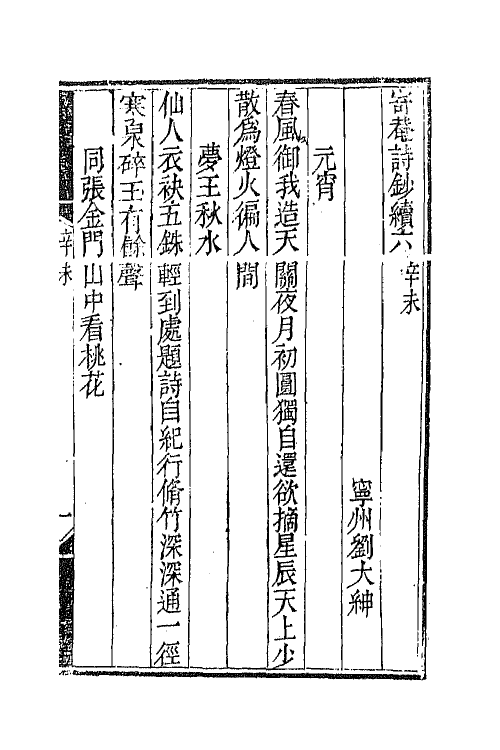 寄菴詩鈔續六 辛未
寧州劉大紳
元宵
春風御我造天關夜月初圓獨自還欲摘星辰天上少
散爲燈火徧人間
夢王秋水
仙人衣袂五銖輕到處題詩自紀行脩竹深深通一徑
寒泉碎玉有餘聲
同張金門山中看桃花
辛未
一